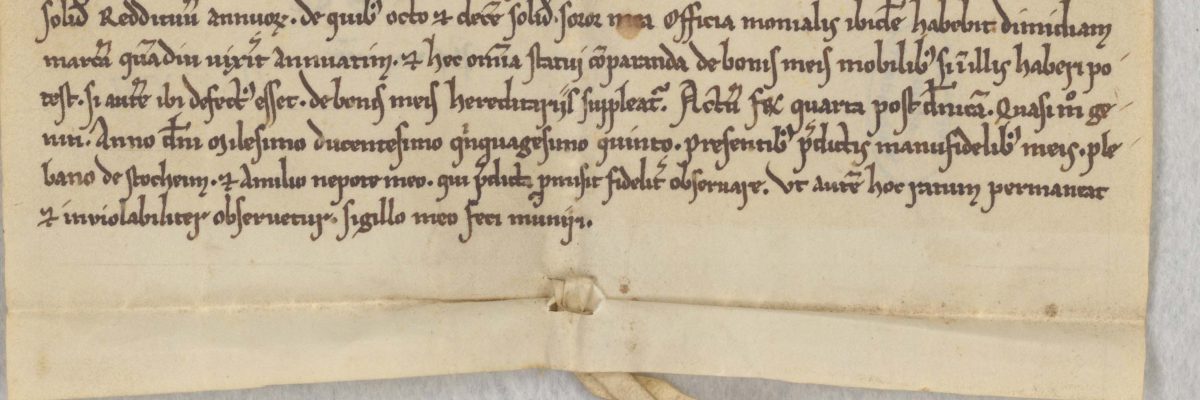 solid̄ Reddituū annuoꝝ. de quibꝰ octo ⁊ decē solid̄. soror mea Officia monialis ibidē habebit dimidiam
marcā quādiu uixᵉit annuatim. ⁊ hec om̄ia statui cōparanda de bonis meis mobilibꝰ si ī illis haberi po
test. si autē ibi defectꝰ esset. de bonis meis hereditarijs suppleatᷣ. Actū feria quarta post dn̄icā. Quasi mͦ ge
niti. Anno dn̄i Milesimo ducentesimo qͥnquagesimo quinto. presentibꝰ p̄dictis manufidelibꝰ meis. ple
bano de stocheim. ⁊ Amilio nepote meo. qui p̄dicta ꝓmisit fidelitᷣ obseruare. Vt autē hoc ratum permaneat
⁊ inviolabiliter observetur. sigillo meo feci mūiri.